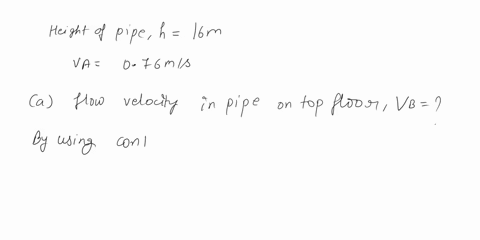 Height of pipe, h = 16m
VA = 0.76m/s
(a) flow velocity in pipe on top floor, VB = ?
By using con